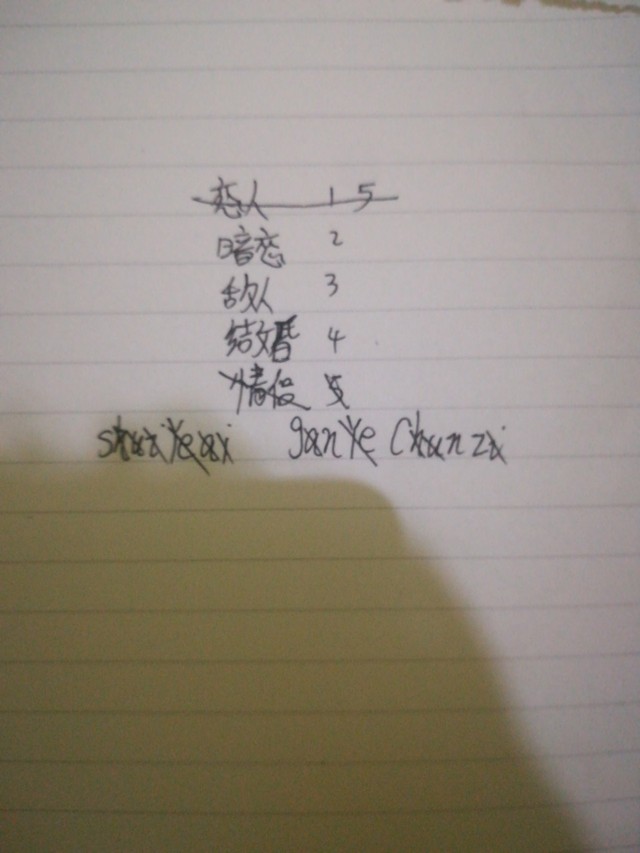 恋人 1 5
暗恋 2
敌人 3
结婚 4
情侣 5
shuxiYeqai ganYe Chunzi